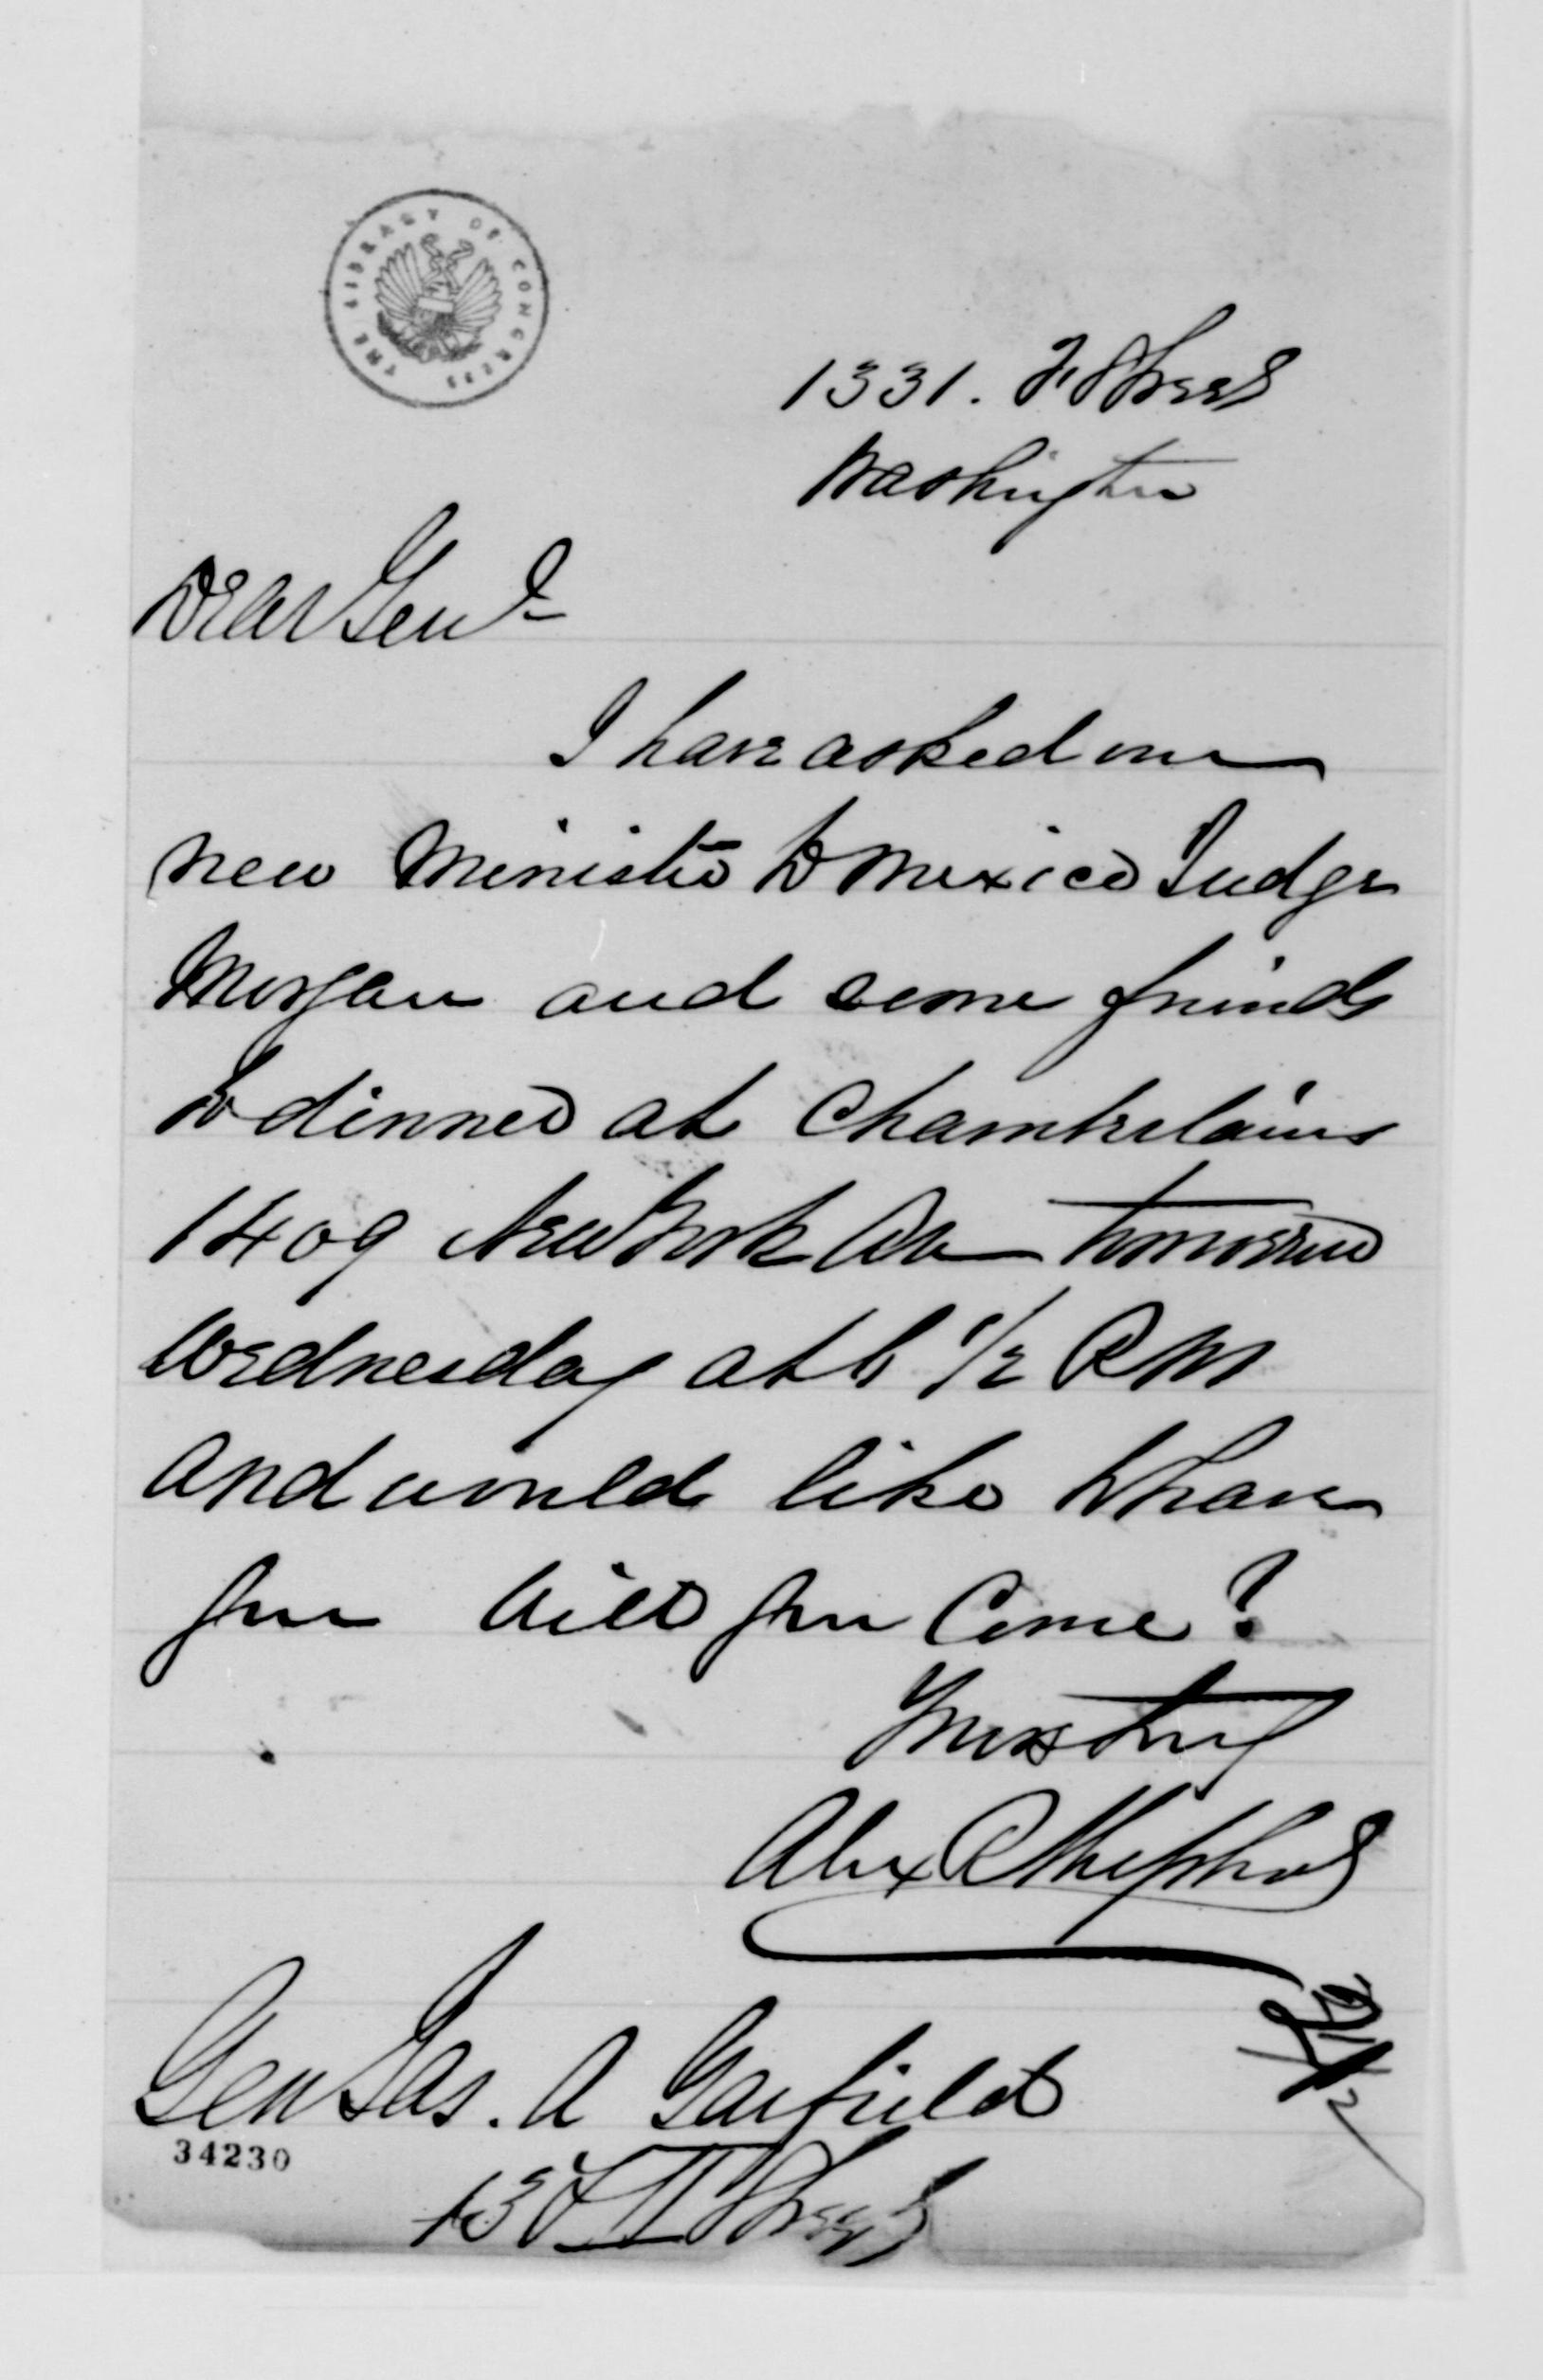 THE LIBRARY OF CONGRESS
1331. F. Street
Washington
Dear Genl
I have asked our
new Minister to Mexico Judge
Morgan and some friends
to dinner at Chamberlains
1409 New York Ave tomorrow
Wednesday at 6 1/2 PM
and would like to have
you Will you Come?
Yours truly
Alex R Shepherd
Gen Jas. A Garfield
34230
13th I Street